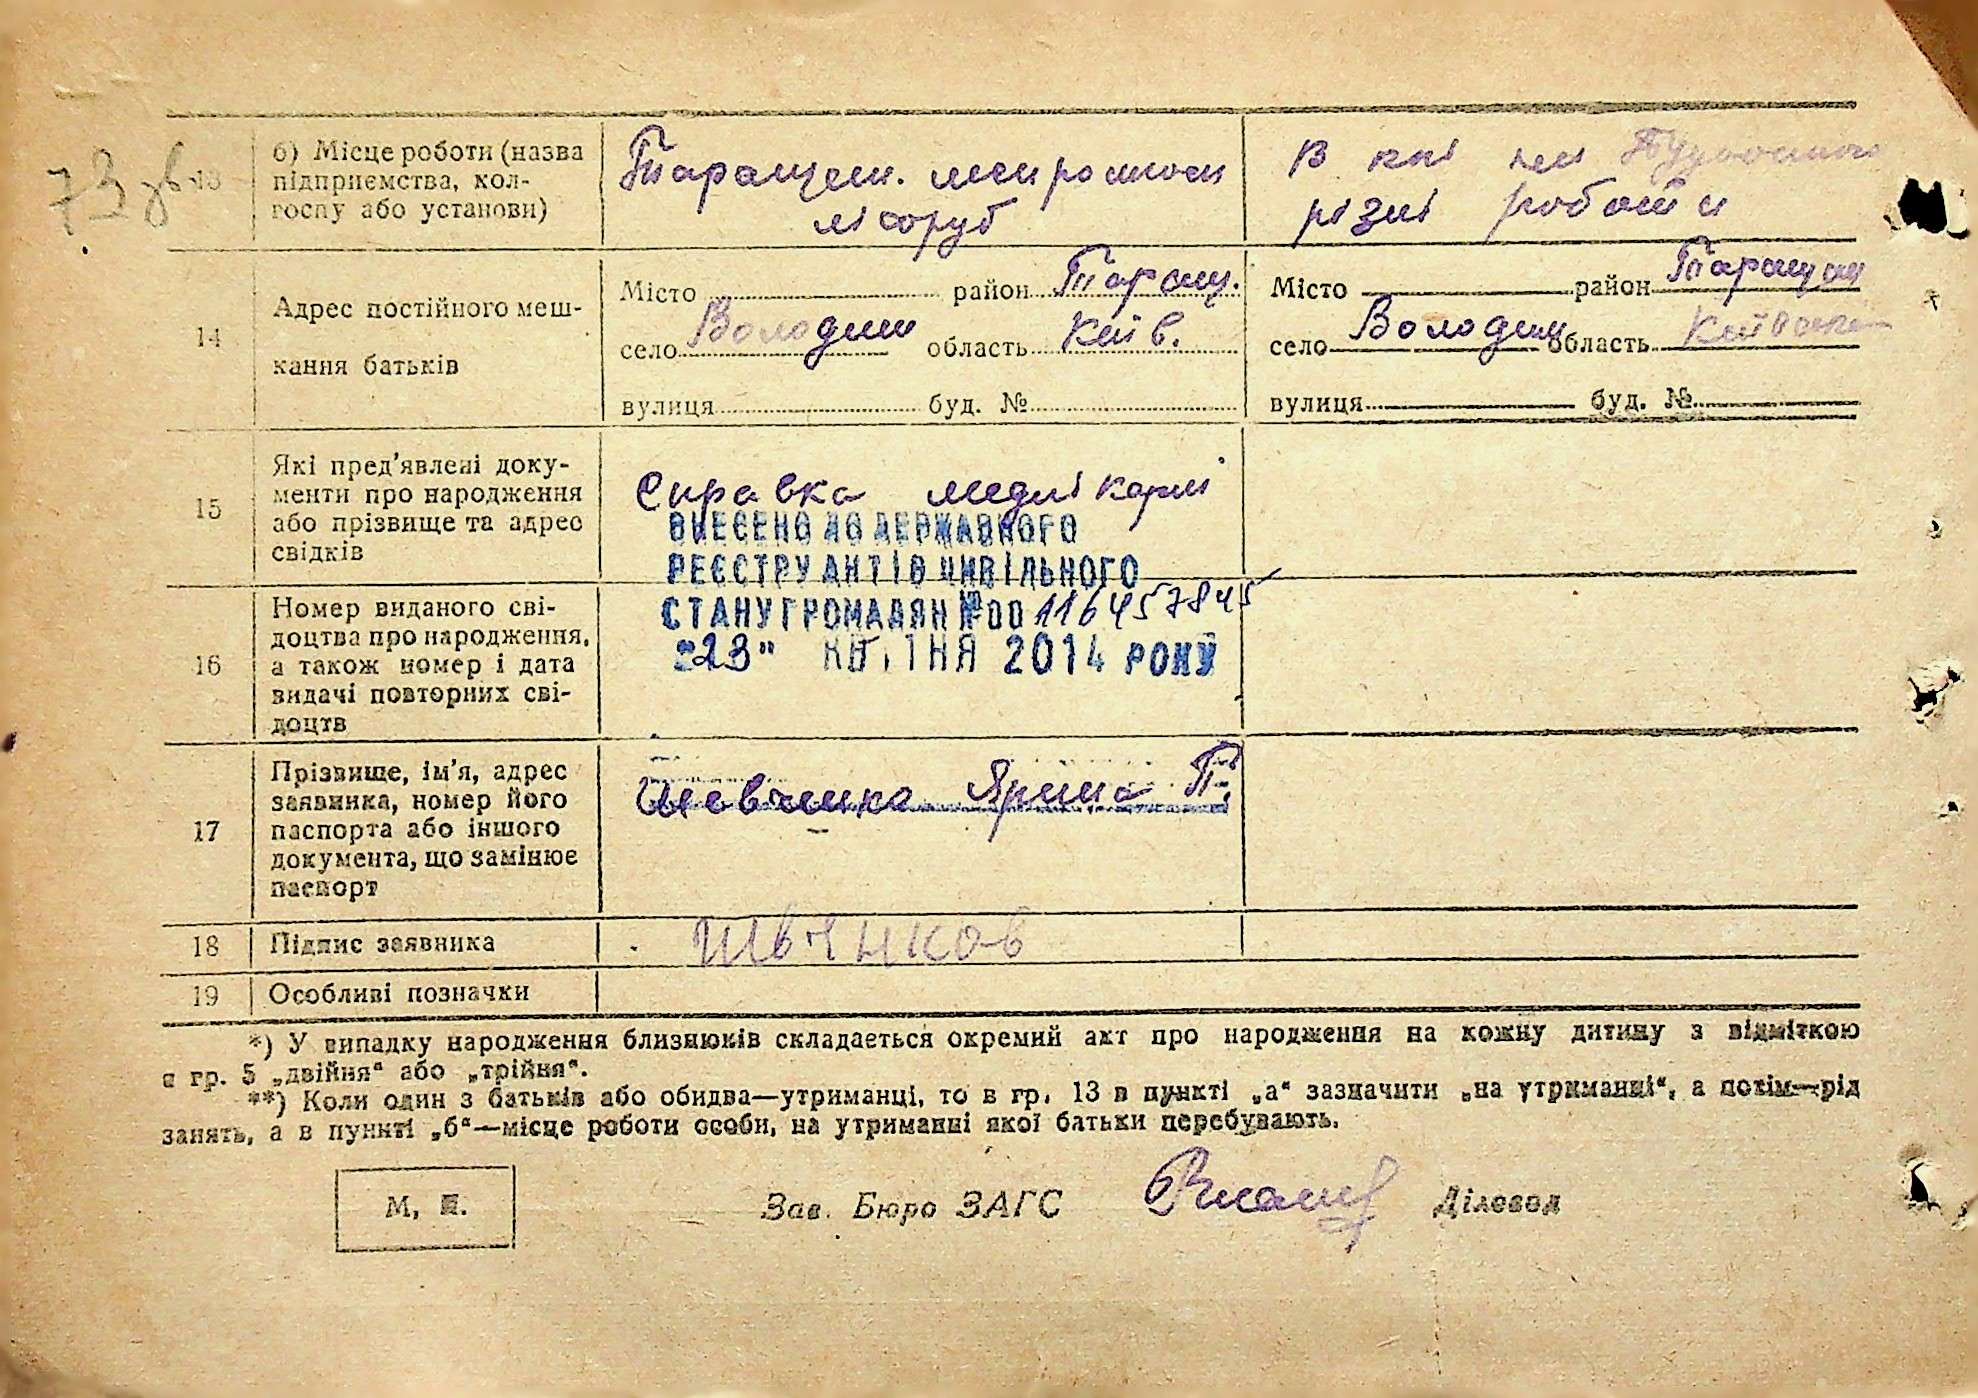 73 зв
13
б) Місце роботи (назва
підприємства, кол-
госпу або установи)
Таращан.
лісоруб
В
різні роботи
14
Адрес постійного меш-
кання батьків
Місто район Таращ.
село Володим область Київ.
вулиця буд. №
Місто район Таращан
село Володим область Київськ
вулиця буд. №
15
Які пред'явлені доку-
менти про народження
або прізвище та адрес
свідків
Справка
ВНЕСЕНО ДО ДЕРЖАВНОГО
РЕЄСТРУ АКТІВ ЦИВІЛЬНОГО
СТАНУ ГРОМАДЯН №00116457845
"23" КВІТНЯ 2014 РОКУ
16
Номер виданого сві-
доцтва про народження,
а також номер і дата
видачі повторних сві-
доцтв
17
Прізвище, ім'я, адрес
заявника, номер його
паспорта або іншого
документа, що замінює
паспорт
Ярина П.
18
Підпис заявника
Швчнков
19
Особливі позначки
*) У випадку народження близнюків складається окремий акт про народження на кожну дитину з відміткою
в гр. 5 „двійня" або „трійня".
**) Коли один з батьків або обидва—утриманці, то в гр. 13 в пункті „а" зазначити „на утриманні", а потім—рід
занять, а в пункті „б"—місце роботи особи, на утриманні якої батьки перебувають.
М. П.
Зав. Бюро ЗАГС
Діловод